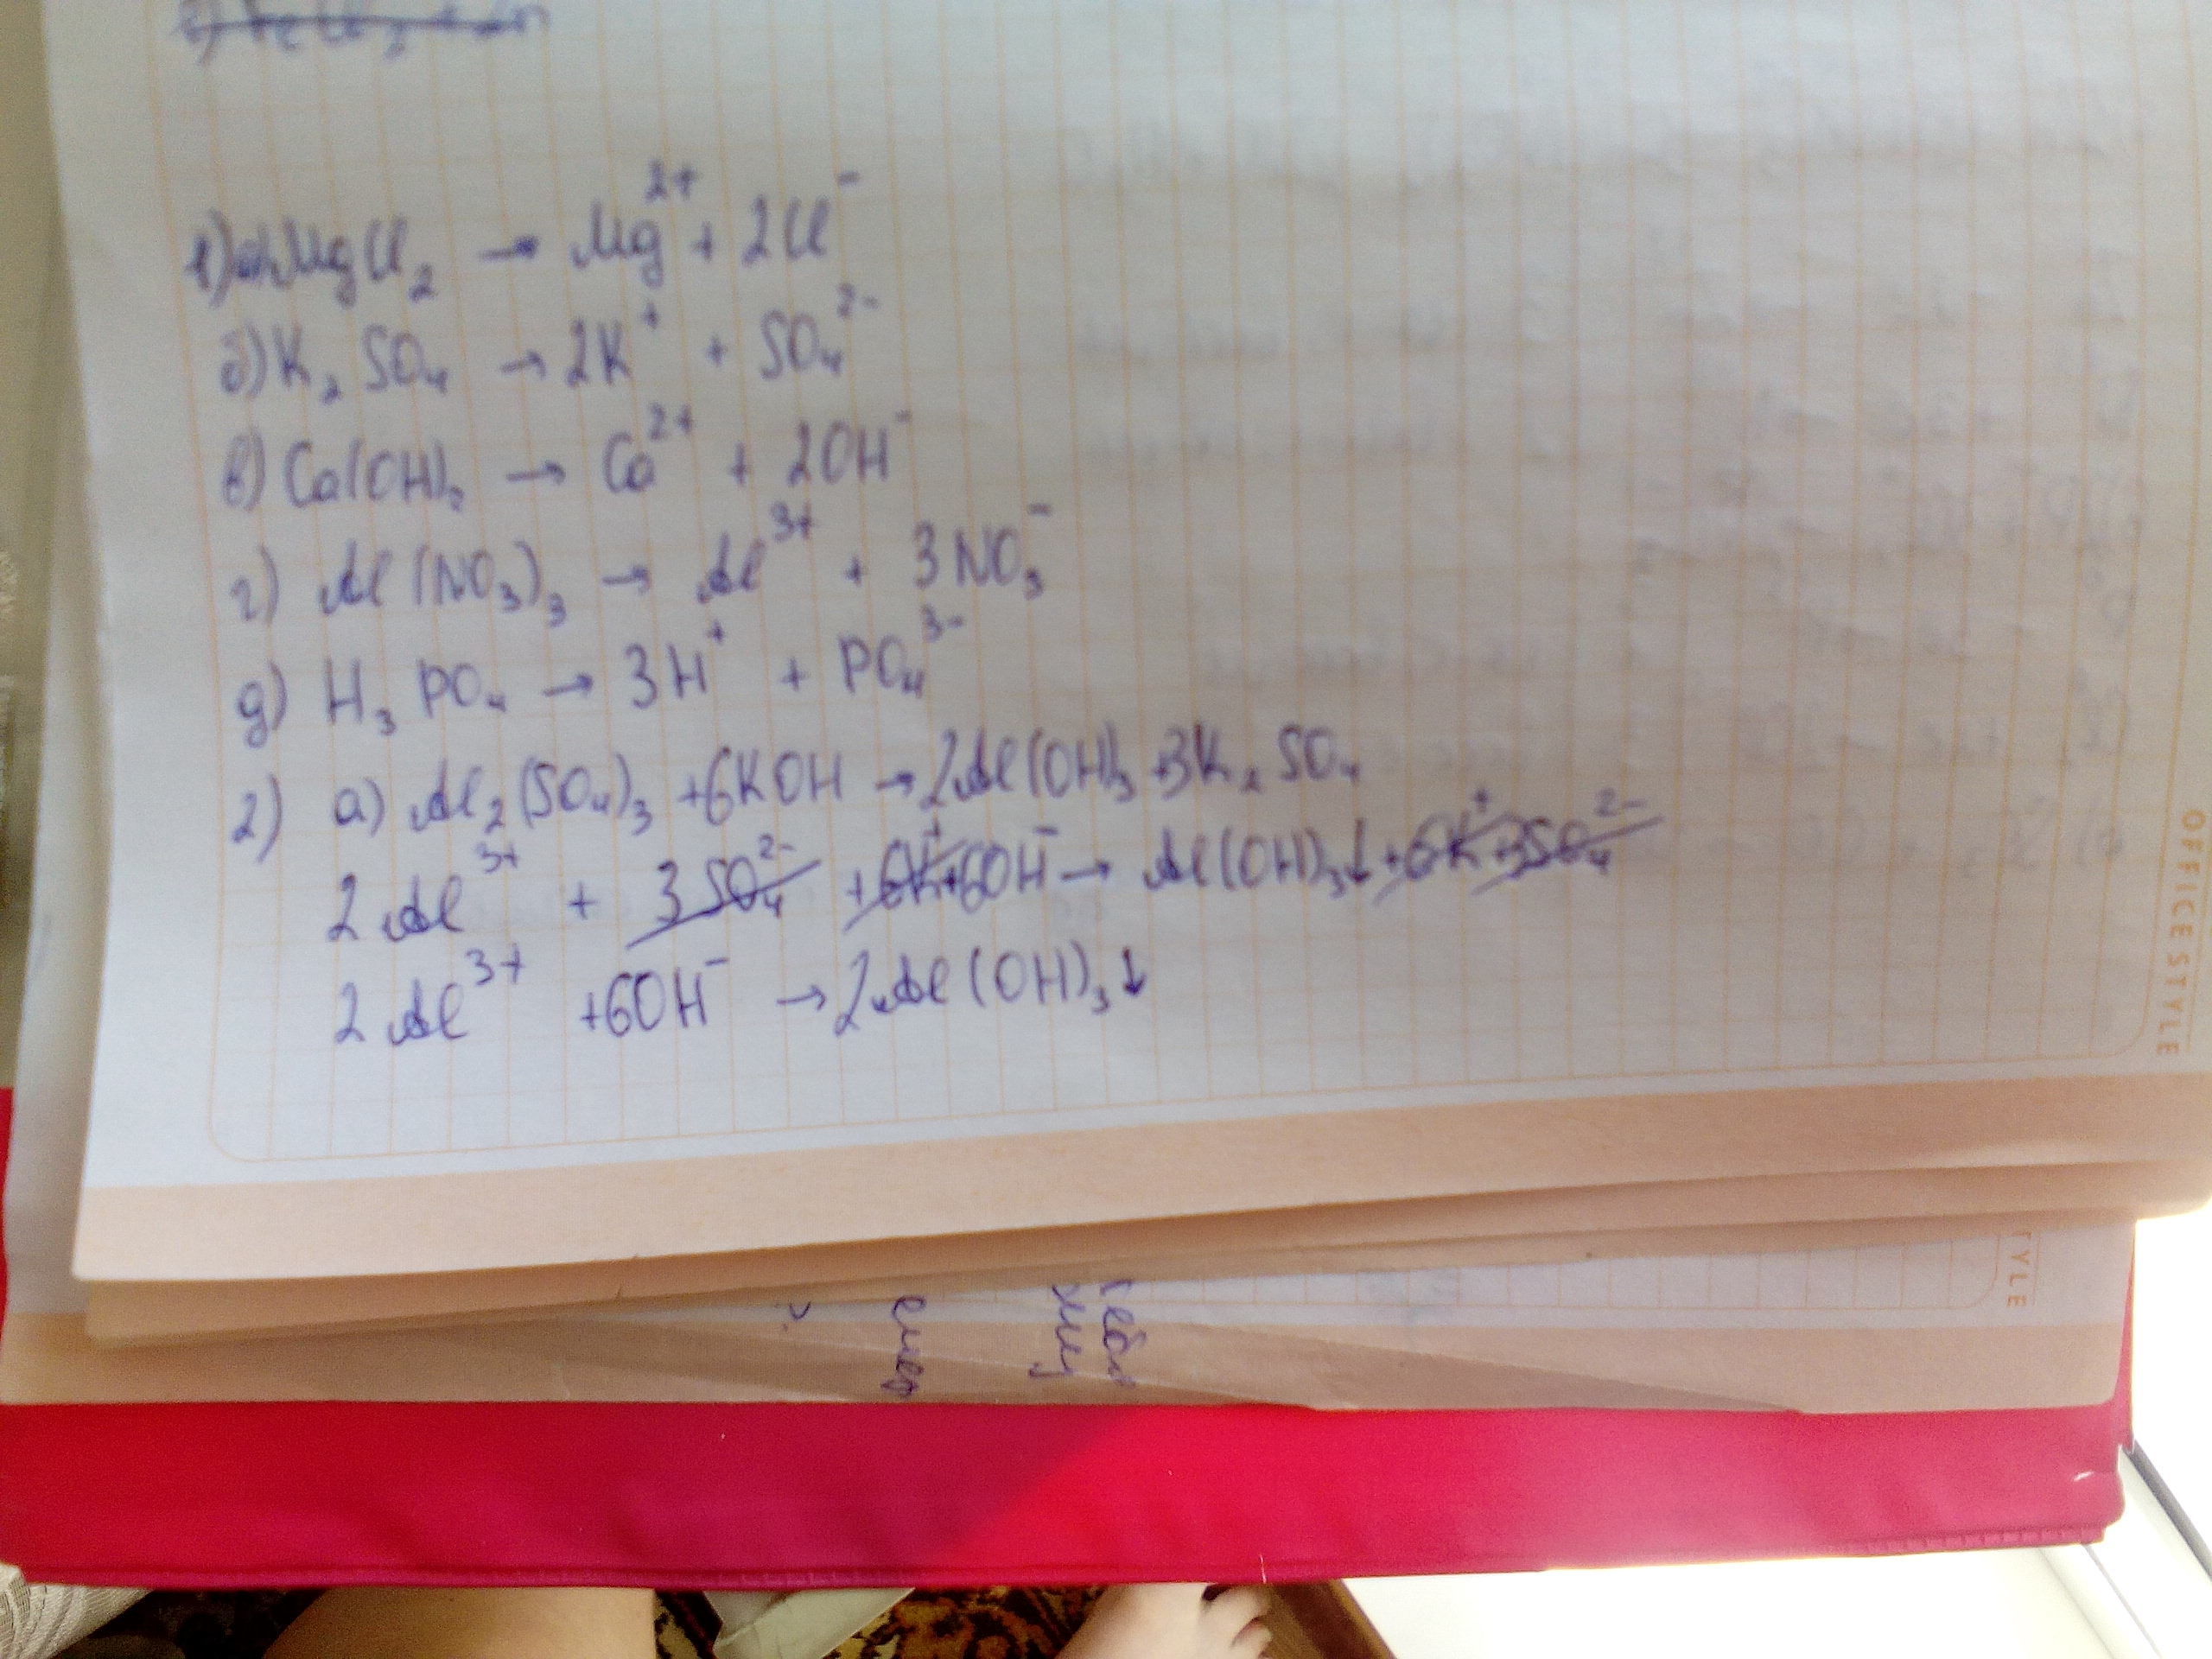 1) а) MgCl₂ → Mg²⁺ + 2Cl⁻
б) K₂SO₄ → 2K⁺ + SO₄²⁻
в) Ca(OH)₂ → Ca²⁺ + 2OH⁻
г) Al(NO₃)₃ → Al³⁺ + 3NO₃⁻
д) H₃PO₄ → 3H⁺ + PO₄³⁻
2) а) Al₂(SO₄)₃ + 6KOH → 2Al(OH)₃ + 3K₂SO₄
2Al³⁺ + 3SO₄²⁻ + 6K⁺ + 6OH⁻ → Al(OH)₃↓ + 6K⁺ + 3SO₄²⁻
2Al³⁺ + 6OH⁻ → 2Al(OH)₃↓
OFFICE STYLE
TYLE